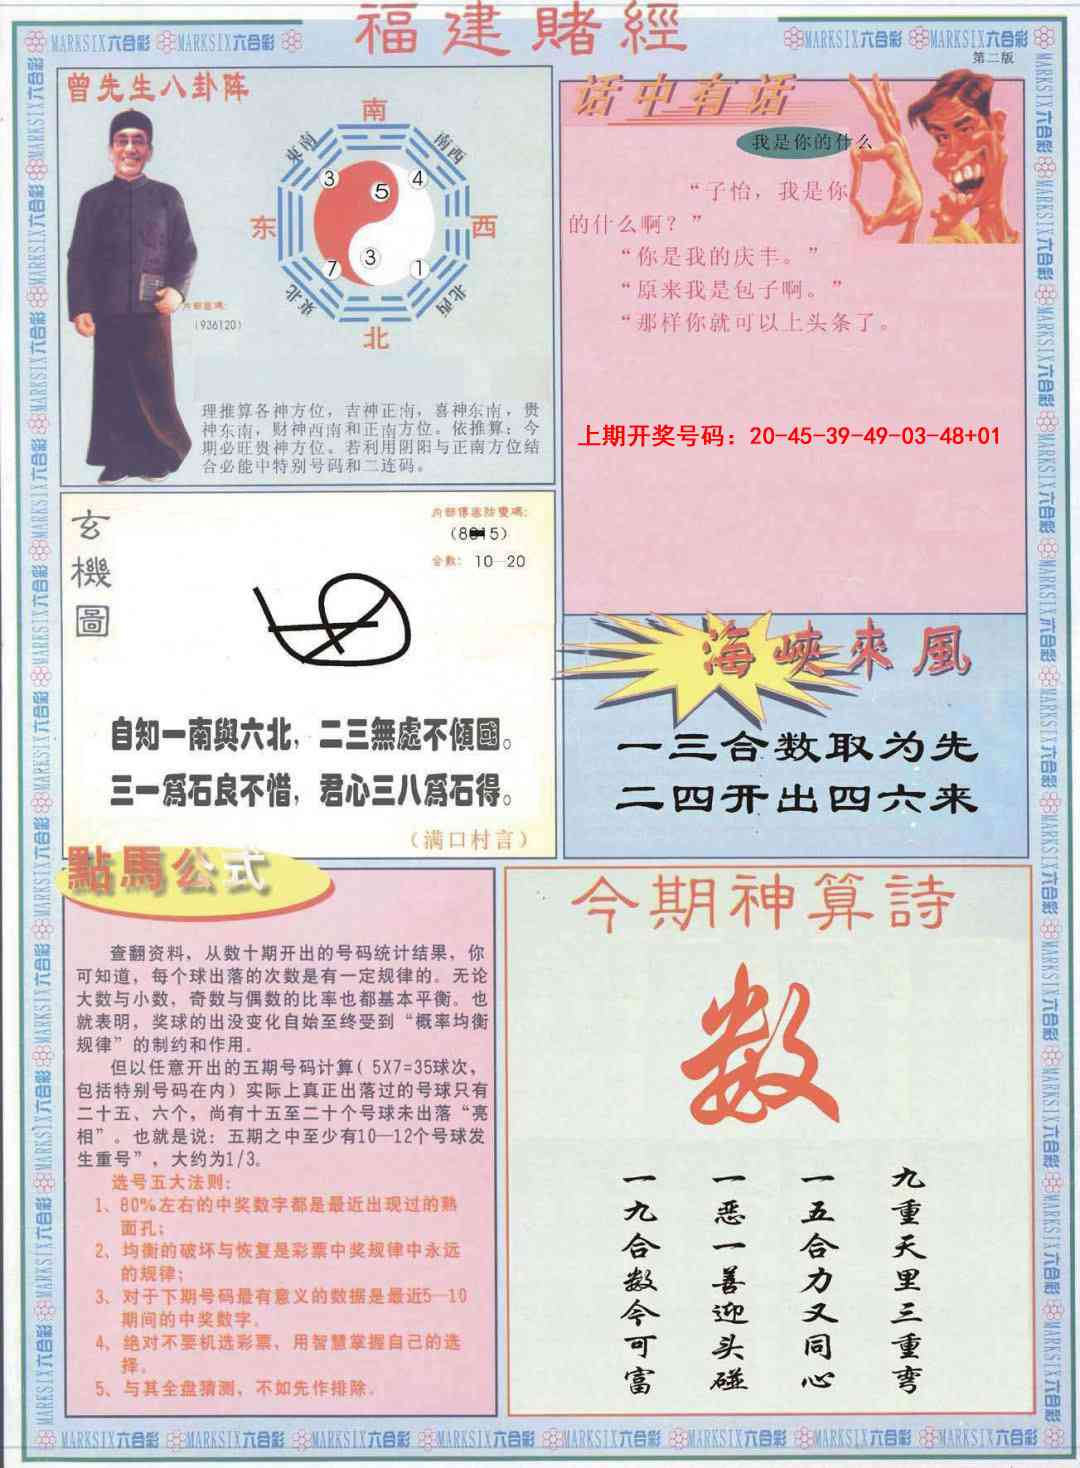 福建賭經
MARKSIX六合彩 MARKSIX六合彩
MARKSIX六合彩 MARKSIX六合彩
第二版
曾先生八卦阵
南
東南
南西
3
5
4
东
西
7
3
1
東北
北西
北
内部密碼：
（936120）
理推算各神方位，吉神正南，喜神东南，贵
神东南，财神西南和正南方位。依推算：今
期必旺贵神方位。若利用阴阳与正南方位结
合必能中特别号码和二连码。
话中有话
我是你的什么
“子怡，我是你
的什么啊？”
“你是我的庆丰。”
“原来我是包子啊。”
“那样你就可以上头条了。
上期开奖号码：20-45-39-49-03-48+01
玄機圖
内部傳密防雙碼：
合數：10—20
自知一南與六北，二三無處不傾國。
三一爲石良不惜，君心三八爲石得。
（满口村言）
海峽來風
一三合数取为先
二四开出四六来
點馬公式
查翻资料，从数十期开出的号码统计结果，你
可知道，每个球出落的次数是有一定规律的。无论
大数与小数，奇数与偶数的比率也都基本平衡。也
就表明，奖球的出没变化自始至终受到“概率均衡
规律”的制约和作用。
但以任意开出的五期号码计算（5X7=35球次，
包括特别号码在内）实际上真正出落过的号球只有
二十五、六个，尚有十五至二十个号球未出落“亮
相”。也就是说：五期之中至少有10—12个号球发
生重号”，大约为1/3。
选号五大法则：
1、80%左右的中奖数字都是最近出现过的熟
面孔；
2、均衡的破坏与恢复是彩票中奖规律中永远
的规律；
3、对于下期号码最有意义的数据是最近5—10
期间的中奖数字。
4、绝对不要机选彩票，用智慧掌握自己的选
择。
5、与其全盘猜测，不如先作排除。
今期神算詩
数
九重天里三重弯
一五合力又同心
一恶一善迎头碰
一九合数今可富
MARKSIX六合彩 MARKSIX六合彩 MARKSIX六合彩 MARKSIX六合彩 MARKSIX六合彩 MARKSIX六合彩 MARKSIX六合彩 MARKSIX六合彩